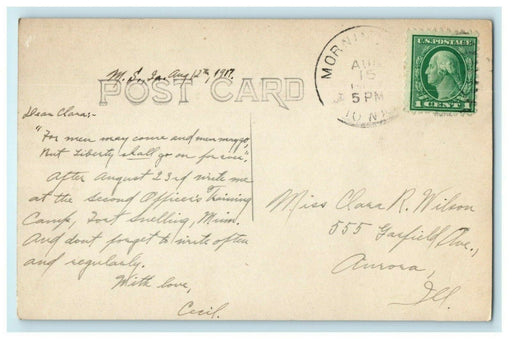 M. S., Ia. Aug 12th, 1917.
POST CARD
MORNIN
AUG
15
5 PM
IOWA
U.S. POSTAGE
1 CENT 1
Dear Clara:-
"For men may come and men may go,
But Liberty shall go on forever."
After August 23rd write me
at the Second Officer's Training
Camp, Fort Snelling, Minn.
And dont forget to write often
and regularly.
With love,
Cecil.
Miss Clara R. Wilson
555 Garfield Ave.,
Aurora,
Ill.